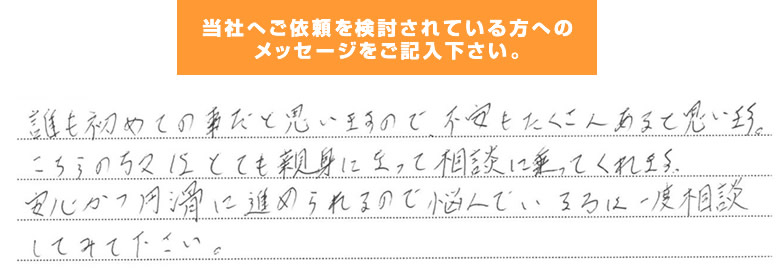 当社へご依頼を検討されている方への
メッセージをご記入下さい。
誰も初めての事だと思いますので、不安もたくさんあると思います。
こちらの方々はとても親身になって相談に乗ってくれます。
安心かつ円滑に進められるので悩んでいる方は一度相談
してみて下さい。